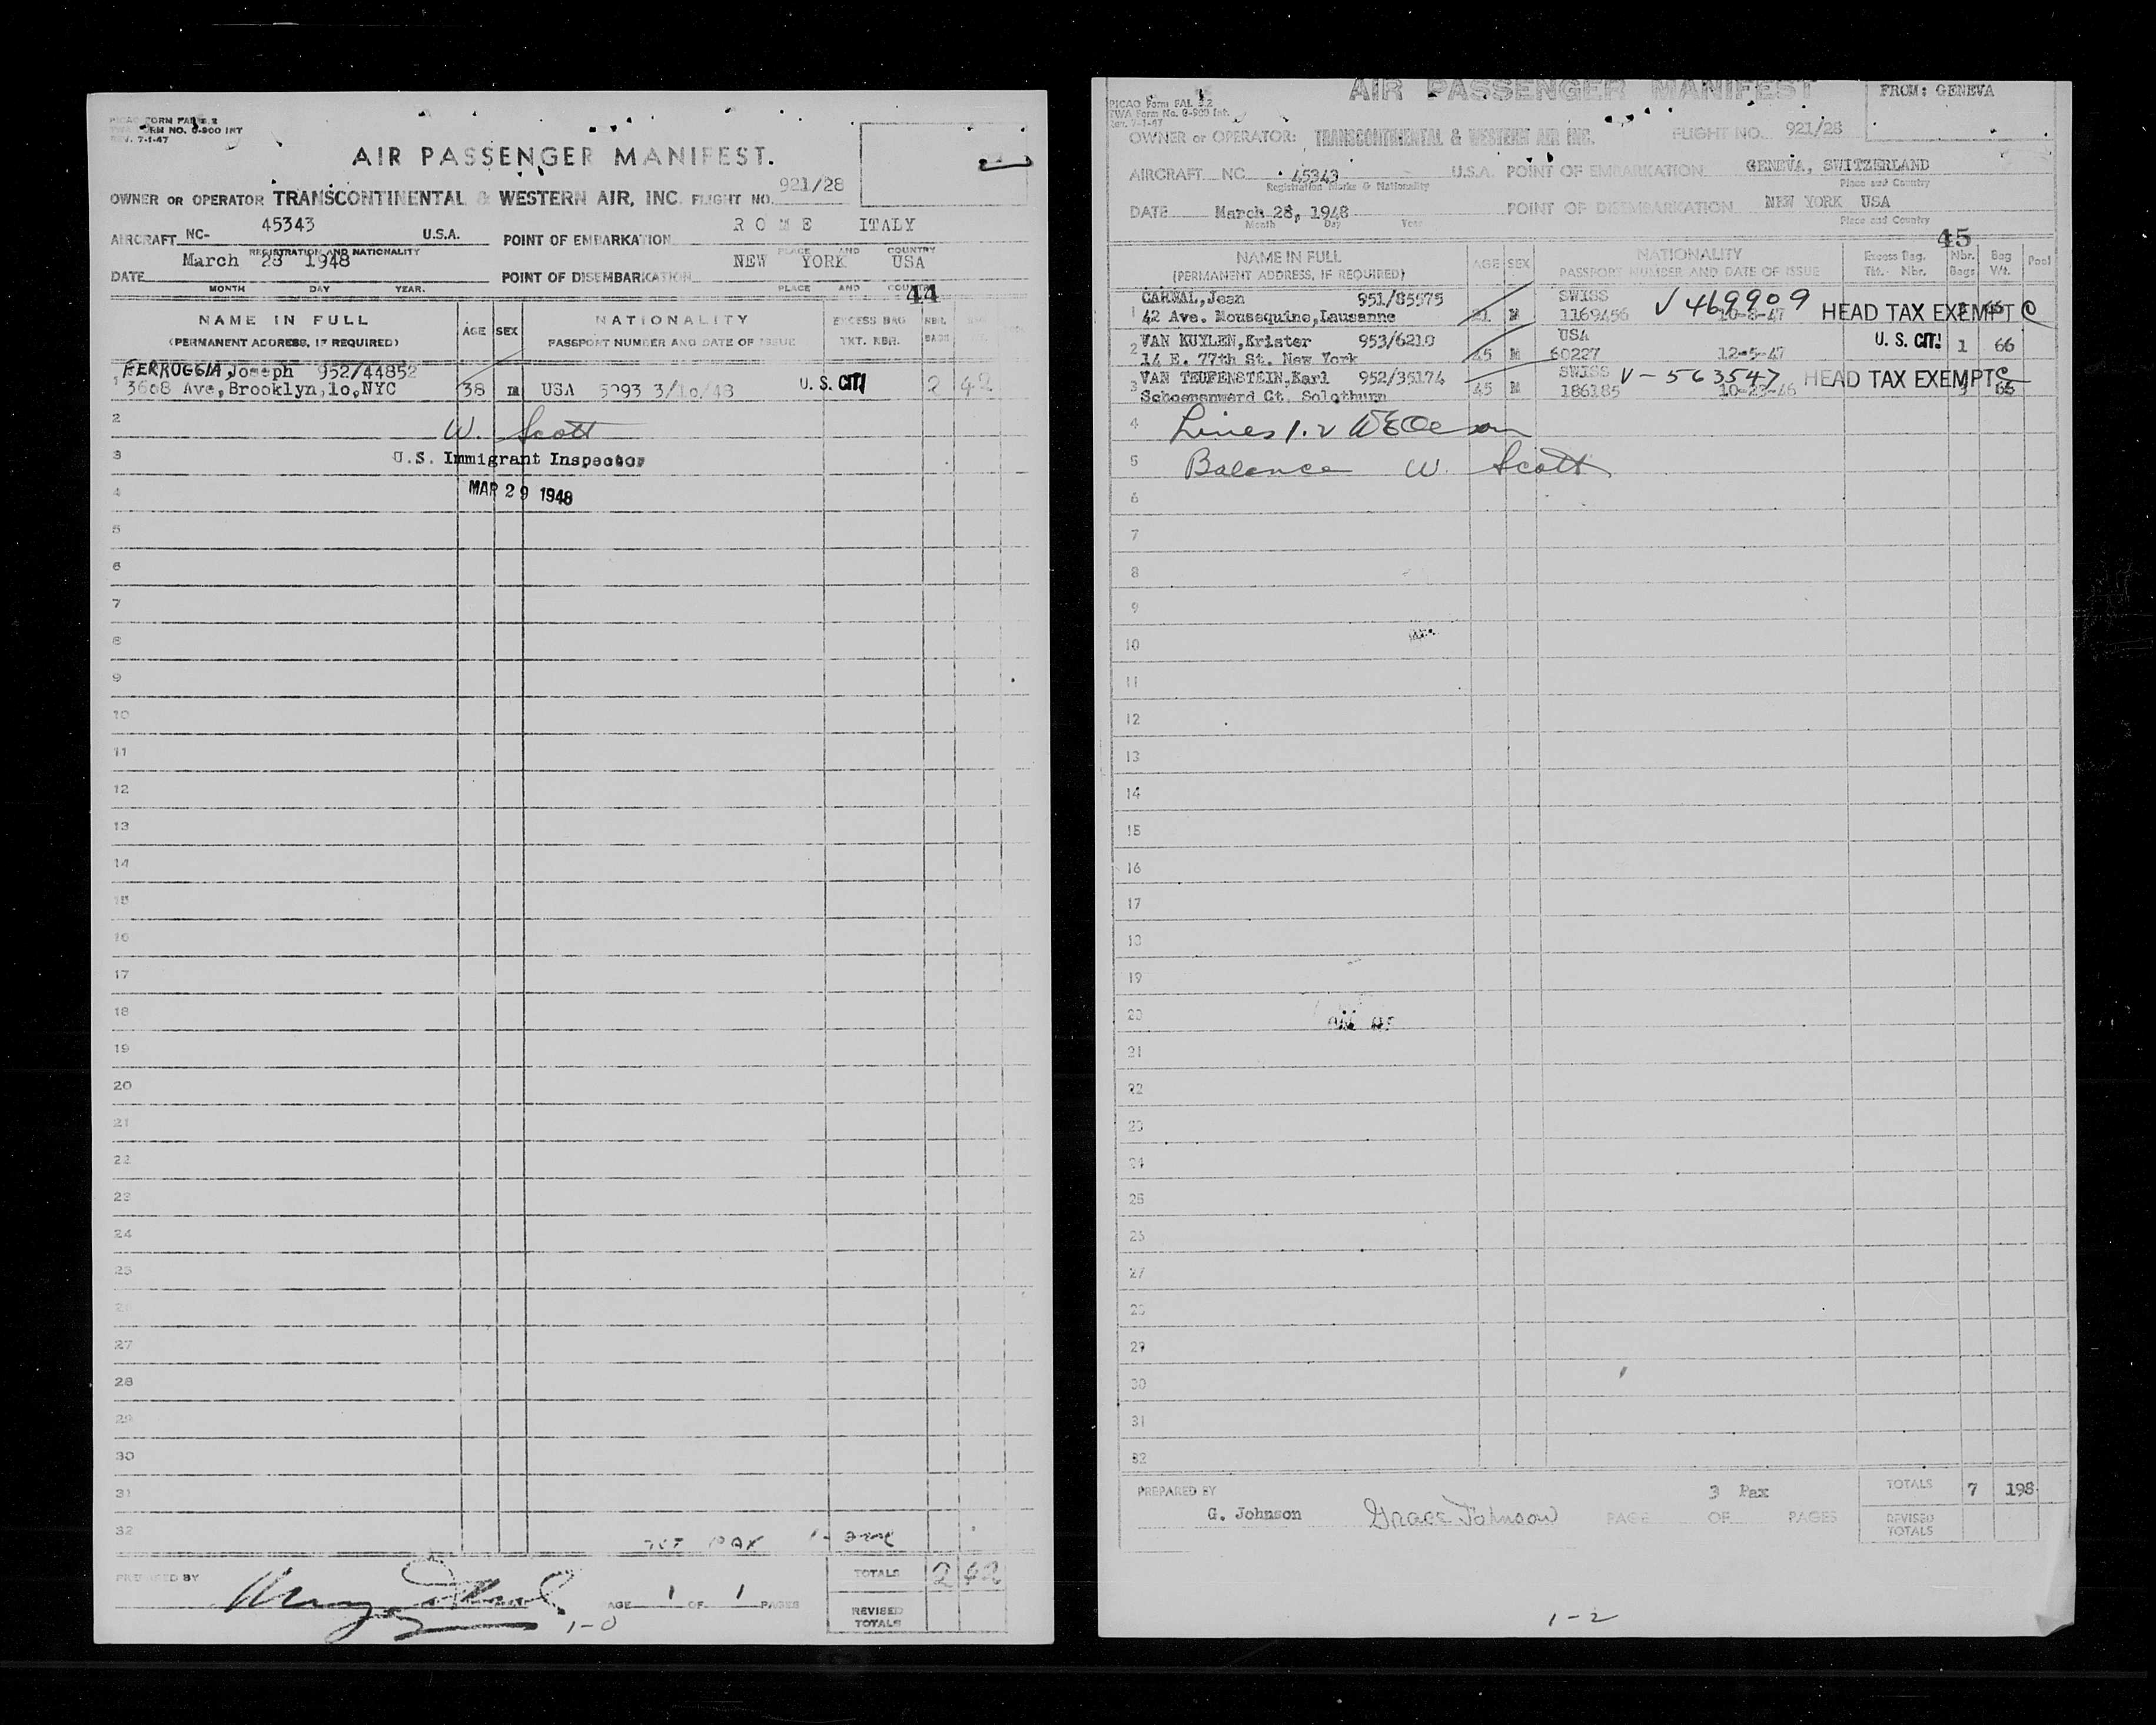 PICAO FORM FAL 2.2
TWA FORM NO. O-900 INT
REV. 7-1-47
AIR PASSENGER MANIFEST.
OWNER OR OPERATOR TRANSCONTINENTAL & WESTERN AIR, INC. FLIGHT NO. 921/28
AIRCRAFT NC- 45343 U.S.A. POINT OF EMBARKATION ROME ITALY
REGISTRATION AND NATIONALITY PLACE AND COUNTRY
DATE March 28 1948 POINT OF DISEMBARKATION NEW YORK USA
MONTH DAY YEAR. PLACE AND COUNTRY
44
NAME IN FULL AGE SEX NATIONALITY EXCESS BAG NBR.
(PERMANENT ADDRESS, IF REQUIRED) PASSPORT NUMBER AND DATE OF ISSUE TKT. NBR. BAGS
FERROGGIA, Joseph 952/44852
1 3608 Ave, Brooklyn, 1o, NYC 38 M USA 5093 3/1o/48 U. S. CIT. 2 42
2 W. Scott
3 U.S. Immigrant Inspector
4 MAR 29 1948
5
6
7
8
9
10
11
12
13
14
15
16
17
18
19
20
21
22
23
24
25
26
27
28
29
30
31
32
PAX
PREPARED BY PAGE 1 OF 1 PAGES TOTALS 2 42
1-0 REVISED TOTALS
AIR PASSENGER MANIFEST
FROM: GENEVA
PICAO Form FAL 2.2
TWA Form No. O-900 Int.
Rev. 7-1-47
OWNER or OPERATOR: TRANSCONTINENTAL & WESTERN AIR INC. FLIGHT NO. 921/28
AIRCRAFT NC 45343 U.S.A. POINT OF EMBARKATION GENEVA, SWITZERLAND
Registration Marks & Nationality Place and Country
DATE March 28, 1948 POINT OF DISEMBARKATION NEW YORK USA
Month Day Year Place and Country
45
NAME IN FULL AGE SEX NATIONALITY Excess Bag. Nbr. Bag Pool
(PERMANENT ADDRESS, IF REQUIRED) PASSPORT NUMBER AND DATE OF ISSUE Tkt. Nbr. Bags Wt.
CARNAL, Jean 951/85575 SWISS V 469909 HEAD TAX EXEMPT C
1 42 Ave. Mousequine, Lausanne M 1169456
2 VAN KUYLEN, Krister 953/6210 USA U. S. CIT. 1 66
14 E. 77th St. New York 45 M 60227 12-5-47
3 VAN TEUFENSTEIN, Karl 952/35174 SWISS V-563547 HEAD TAX EXEMPT C
Schoenenwerd Ct. Solothurn 45 M 186185 10-23-46
4 Lines 1. 2
5 Balance W. Scott
6
7
8
9
10
11
12
13
14
15
16
17
18
19
20
21
22
23
24
25
26
27
28
29
30
31
32
PREPARED BY 3 Pax TOTALS 7 198
G. Johnson Grace Johnson PAGE OF PAGES REVISED TOTALS
1-2